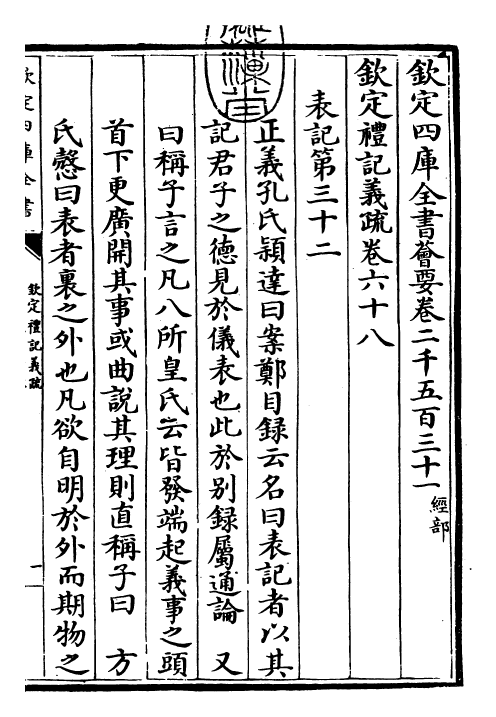 欽定四庫全書薈要卷二千五百三十一 經部
欽定禮記義疏卷六十八
表記第三十二
正義孔氏頴達曰案鄭目録云名曰表記者以其
記君子之德見於儀表也此於别録屬通論 又
曰稱子言之凡八所皇氏云皆發端起義事之頭
首下更廣開其事或曲說其理則直稱子曰 方
氏慤曰表者裏之外也凡欲自明於外而期物之
欽定四庫全書
欽定禮記義疏
一